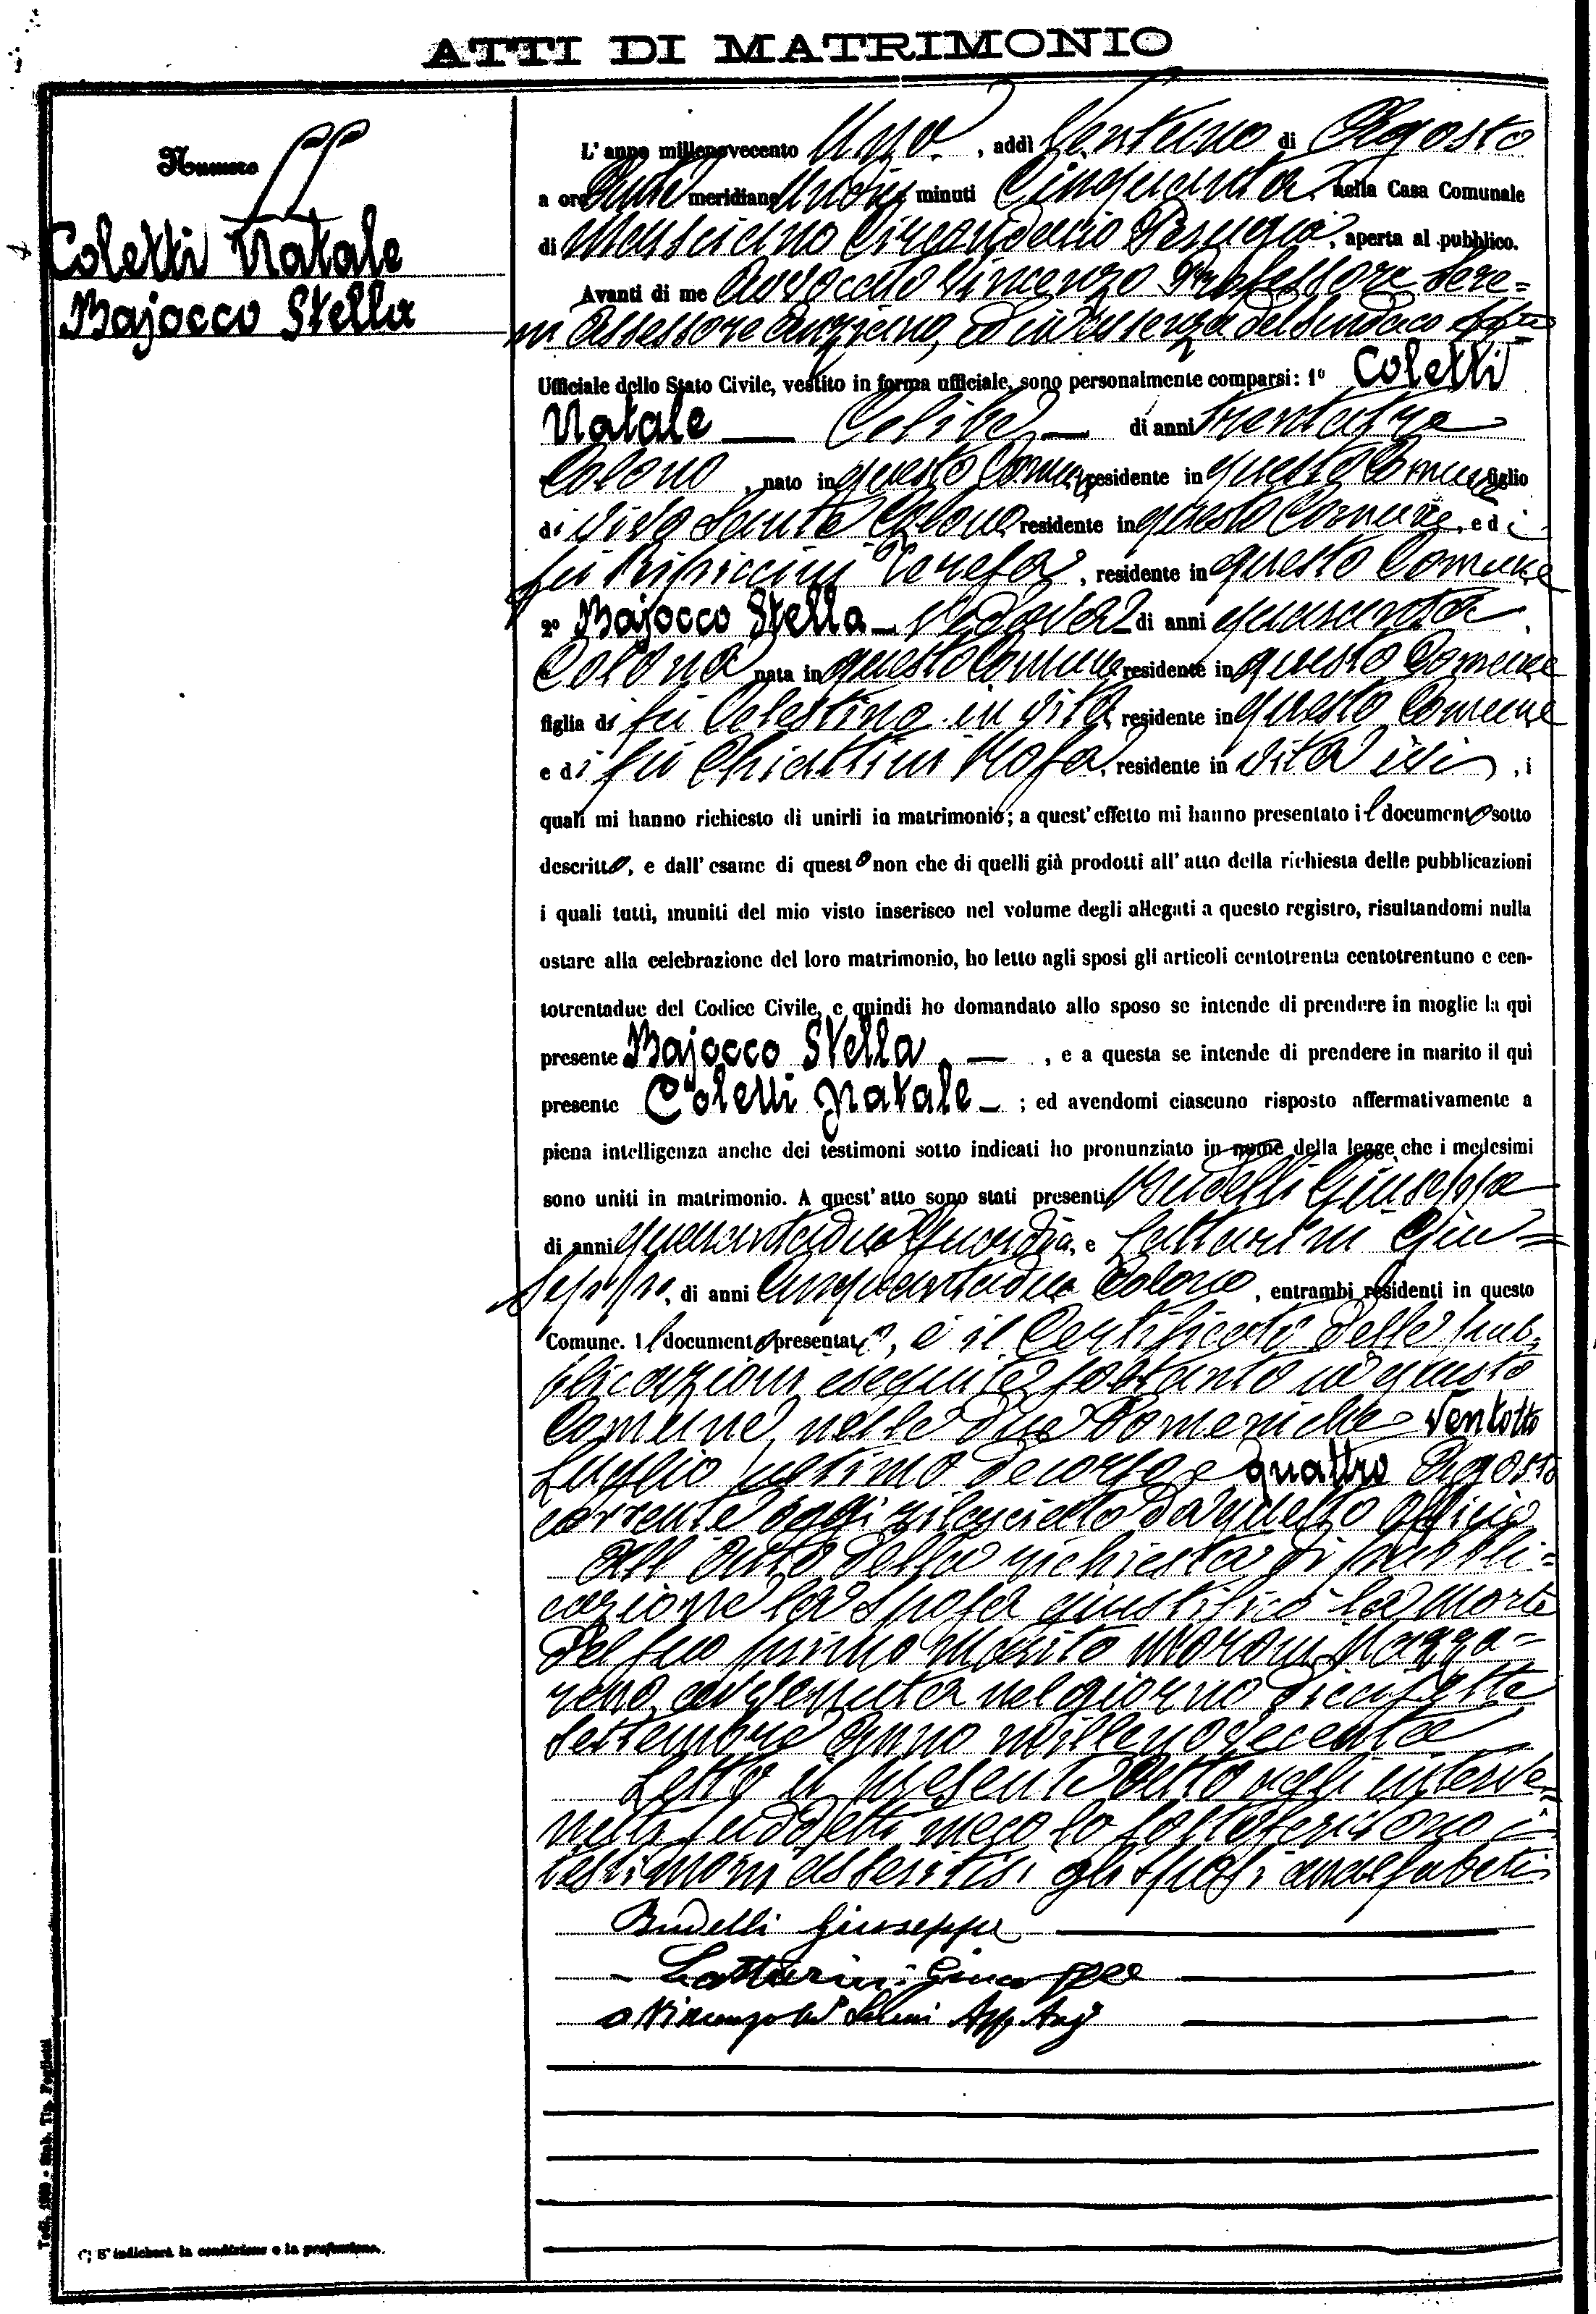 ATTI DI MATRIMONIO
Numero
Coletti Natale
Bajocco Stella
L'anno millenovecento Uno, addì Ventuno di Agosto
a ore Anti meridiane Undici minuti Cinquanta, nella Casa Comunale
di Marsciano Circondario Perugia, aperta al pubblico.
Avanti di me Avvocato Vincenzo Professore Sere=
ni Assessore Anziano, ed in assenza del Sindaco
Ufficiale dello Stato Civile, vestito in forma ufficiale, sono personalmente comparsi: 1º Coletti
Natale — Celibe — di anni trentatre
Colono, nato in questo Comune, residente in questo Comune figlio
di vivo Sante Colono, residente in questo Comune, e di
fu Teresa, residente in questo Comune
2º Bajocco Stella — Vedova — di anni quaranta,
Colona nata in questo Comune residente in questo Comune
figlia di fu Celestino in vita residente in questo Comune
e di fu Chiattini Rosa, residente in vita ivi, i
quali mi hanno richiesto di unirli in matrimonio; a quest'effetto mi hanno presentato il documento sotto
descritto, e dall'esame di questo non che di quelli già prodotti all'atto della richiesta delle pubblicazioni
i quali tutti, muniti del mio visto inserisco nel volume degli allegati a questo registro, risultandomi nulla
ostare alla celebrazione del loro matrimonio, ho letto agli sposi gli articoli centotrenta centotrentuno e cen-
totrentadue del Codice Civile, e quindi ho domandato allo sposo se intende di prendere in moglie la quì
presente Bajocco Stella —, e a questa se intende di prendere in marito il quì
presente Coletti Natale —; ed avendomi ciascuno risposto affermativamente a
piena intelligenza anche dei testimoni sotto indicati ho pronunziato in nome della legge che i medesimi
sono uniti in matrimonio. A quest'atto sono stati presenti Budelli Giuseppe
di anni quarantadue Guardia, e Lattarini Giu=
seppe, di anni Cinquantadue Colono, entrambi residenti in questo
Comune. Il documento presentato, è il Certificato delle pub=
blicazioni eseguite soltanto in questo
Comune, nelle due Domeniche Ventotto
Luglio ultimo decorso e quattro Agosto
corrente oggi rilasciato da questo Officio
All'atto della richiesta di pubbli=
cazione la Sposa giustificò la morte
del suo primo Marito Moroni Nazza=
reno, avvenuta nel giorno diecisette
Settembre anno millenovecento
Letto il presente Atto agli interve=
nuti suddetti meco lo sottoscrivono i
testimoni gli Sposi analfabeti
Budelli Giuseppe
Lattarini Giuseppe
Vincenzo Sereni Ass. Anz.
Todi, 1900 - Stab. Tip. Foglietti
(*) S'indicherà la condizione o la professione.